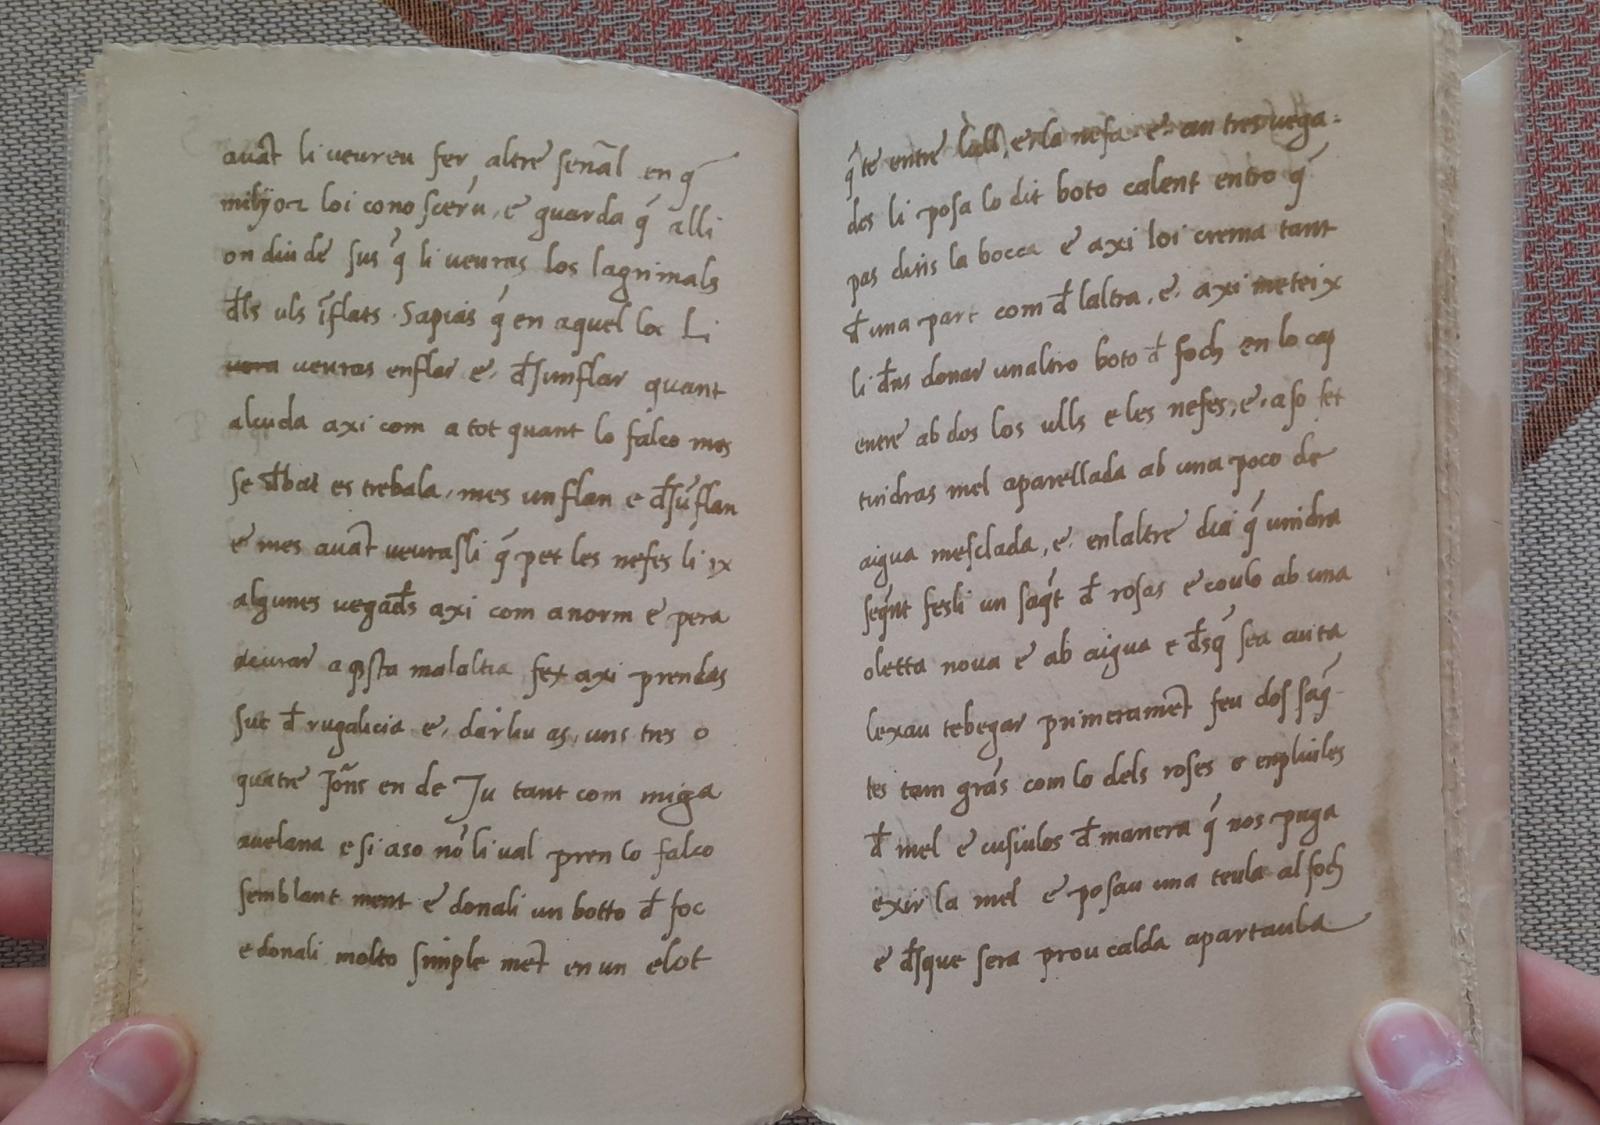 auāt li ueureu fer altre señal en q̄
millyor loi conosceru, e guarda q̄ alli
on diu de sus q̄ li ueuras los lagrimals
d̄ls uls īflats. Sapias q̄ en aquel loc Li
uera ueuras enflar e. d̄sunflar quant
alcuda axi com a tot quant lo falco mes
se d̄bat es trebala, mes unflan e d̄sūflan
e mes auāt ueurasli q̄ pet les nefes li ix
algunes vegad̄s axi com a norm e pera
acurar aq̄sta malaltia fex axi prendas
suc d̄ rugalicia e. darliu as, uns tres o
quatre Jōns en de Ju tant com miga
auelana e si aso no li ual pren lo falco
semblant ment e donali un botto d̄ foc
e donali molto simple mēt en un elot
q̄ te entre lull, e la nefa e. an tres uega-
dos li posa lo dit boto calent entro q̄
pas dins la bocca e axi loi crema tant
d̄ una part com d̄ laltra, e. axi meteix
li d̄us donar un altro boto d̄ foch en lo cap
entre ab dos los ulls e les nefes, e. aso fet
tuidras mel aparellada ab una poco de
aigua mesclada, e. enlaltre dia q̄ unidra
seq̄nt fesli un saq̄t d̄ rosas e coulo ab una
oletta noua e ab aigua e d̄sq̄ sea auita
lexau tebegar primeramēt feu dos saq̄-
tes tam gras com lo dels roses e enpliules
d̄ mel e cusiulos d̄ manera q̄ nos puga
exir la mel e posau una teula al foch
e d̄sque sera prou calda apartaula